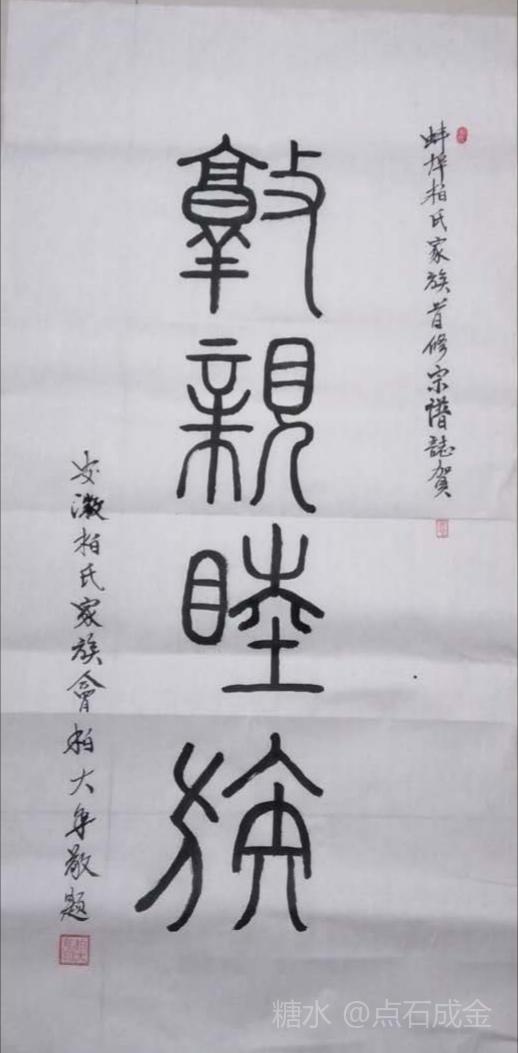 蚌埠柏氏家族首修宗譜誌賀
敦親睦族
安徽柏氏家族會柏大軍敬題
糖水 @点石成金